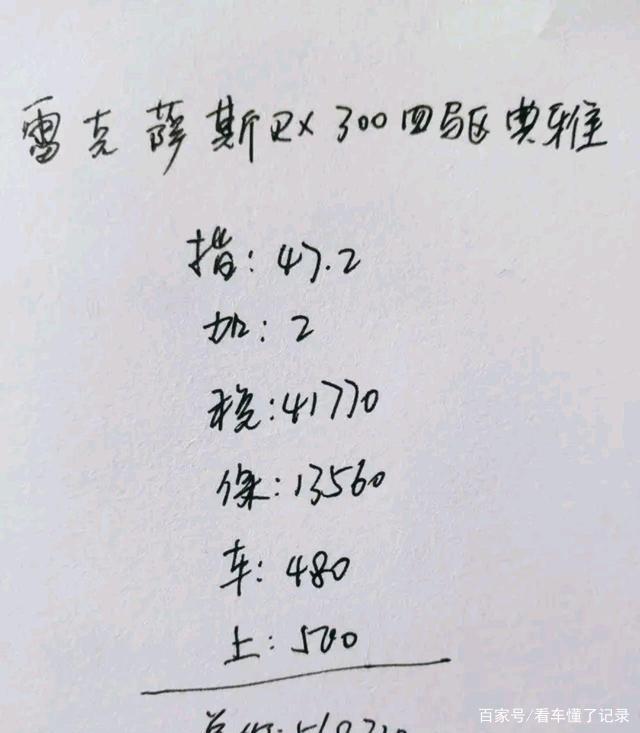 雷克萨斯RX300四驱典雅
指:47.2
加:2
税:41770
保:13560
车:480
上:500
百家号/看车懂了记录